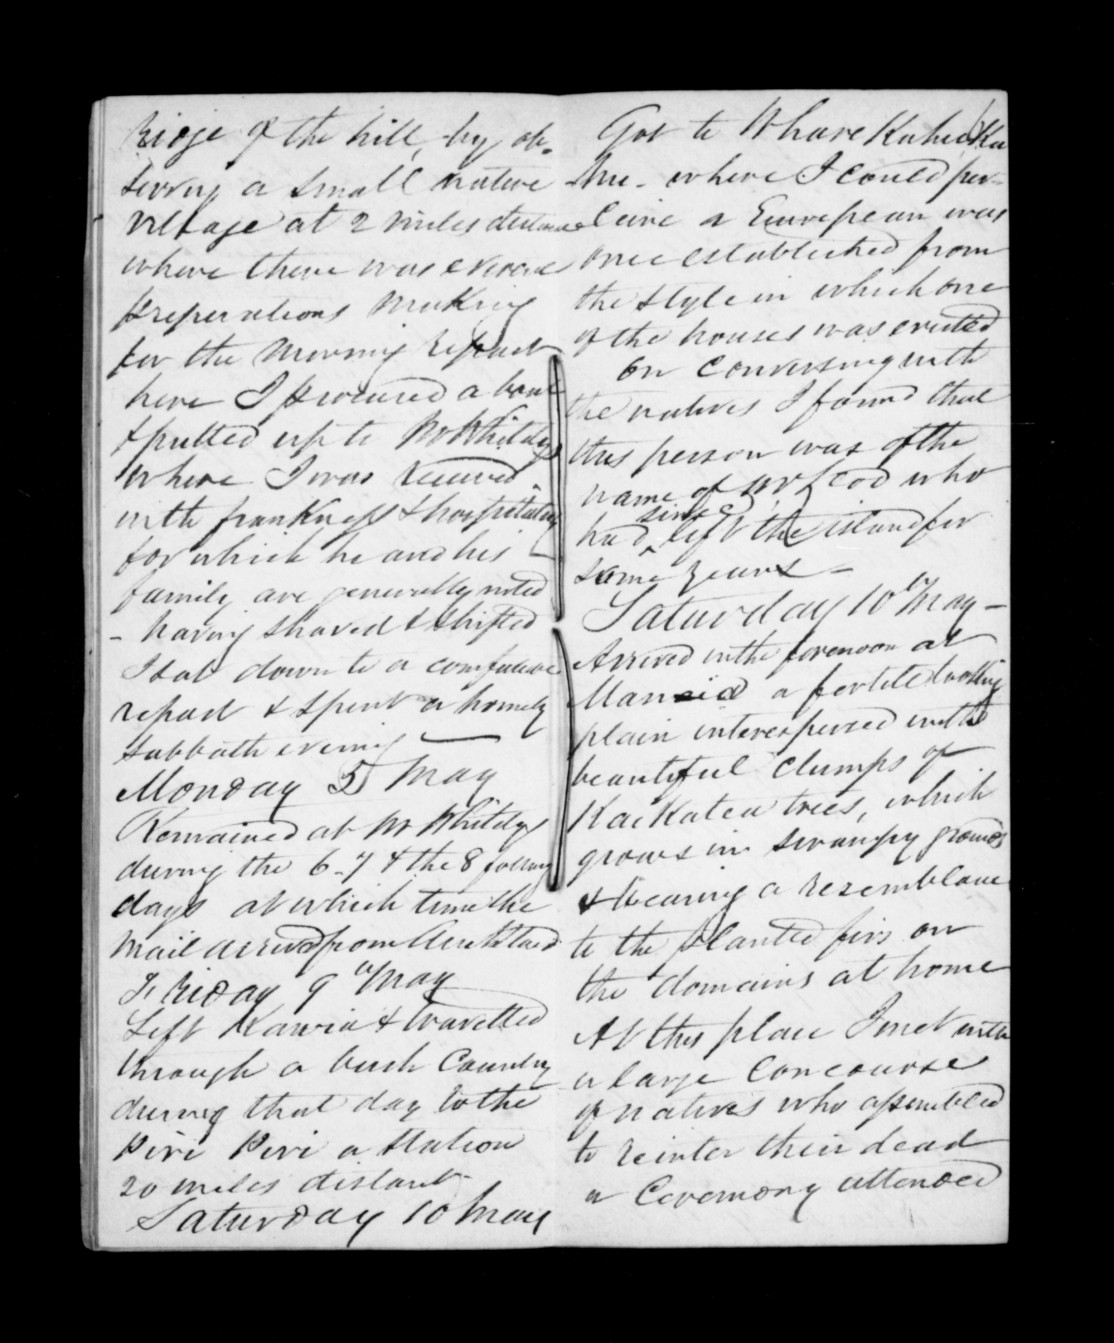 ridge of the hill, by ob-
serving a small native
village at 2 miles distance
where there was
preperations making
for the morning repast
here I procured a boat
& pulled up to Mr Whitelys
where I was received
with frankness & hospitality
for which he and his
family are generally noted
- having shaved & shifted
I sat down to a comfortable
repast & spent a homely
sabbath evening —
Monday 5 May
Remained at Mr Whitelys
during the 6 - 7 & the 8 following
days at which time the
mail arrived from Auckland
Friday 9th May
Left Kawia & travelled
through a bush Country
during that day to the
Piri Piri a station
20 miles distant -
Saturday 10 May
Got to Whare
where I could per-
ceive a European was
once established from
the style in which one
of the houses was erected
On conversing with
the natives I found that
this person was of the
name of who
had since left the island for
some years —
Saturday 10th May —
Arrived in the forenoon at
a fertile looking
plain interspersed with
beautyful clumps of
Kaikatea trees, which
grows in swampy grounds
& bearing a resemblance
to the planted firs on
the domains at home
At this place I met with
a large concourse
of natives who assembled
to reinter their dead
a Ceremony attended